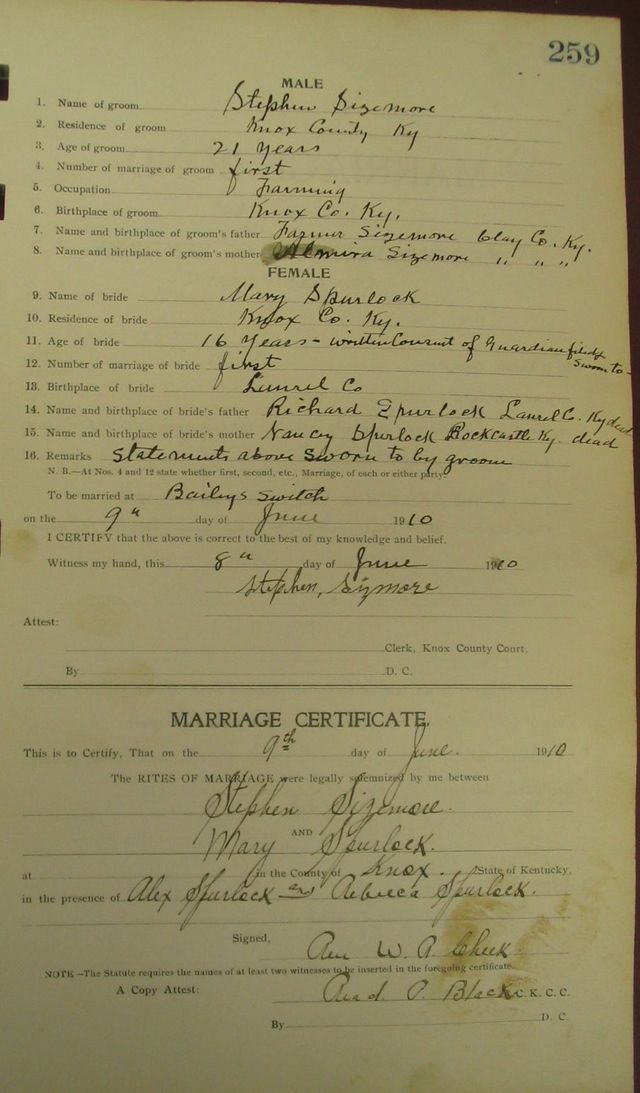 259
MALE
1. Name of groom Stephen Sizemore
2. Residence of groom Knox County Ky
3. Age of groom 21 years
4. Number of marriage of groom first
5. Occupation Farming
6. Birthplace of groom Knox Co. Ky.
7. Name and birthplace of groom's father Sizemore Clay Co. Ky.
8. Name and birthplace of groom's mother Almira Sizemore " " "
FEMALE
9. Name of bride Mary Spurlock
10. Residence of bride Knox Co. Ky.
11. Age of bride 16 years - written Consent of Guardian filed & sworn to -
12. Number of marriage of bride first
13. Birthplace of bride Laurel Co
14. Name and birthplace of bride's father Richard Spurlock Laurel Co. Ky dead
15. Name and birthplace of bride's mother Nancy Spurlock Rockcastle Ky. dead
16. Remarks Statements above sworn to by groom
N. B.—At Nos. 4 and 12 state whether first, second, etc., Marriage, of each or either party.
To be married at Baileys Switch
on the 9" day of June 1910
I CERTIFY that the above is correct to the best of my knowledge and belief.
Witness my hand, this 8" day of June 1910
Stephen, Sizmore
Attest:
Clerk, Knox County Court.
By D. C.
MARRIAGE CERTIFICATE.
This is to Certify, That on the 9th day of June. 1910
The RITES OF MARRIAGE were legally solemnized by me between
Stephen Sizemore.
AND
Mary Spurlock.
at in the County of Knox. State of Kentucky,
in the presence of Alex Spurlock and Rebecca Spurlock.
Signed, W. A. Cheek
NOTE—The Statute requires the names of at least two witnesses to be inserted in the foregoing certificate.
A Copy Attest: Read P. Black C. K. C. C.
By D. C.